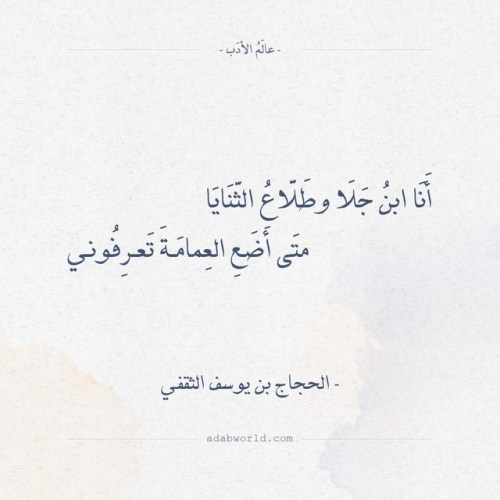 - عالَمُ الأدَب -
أَنَا ابنُ جَلَا وطَلّاعُ الثّنَايَا
متَى أَضَعِ العِمامَـةَ تَعـرِفُوني
- الحجاج بن يوسف الثقفي
adabworld.com